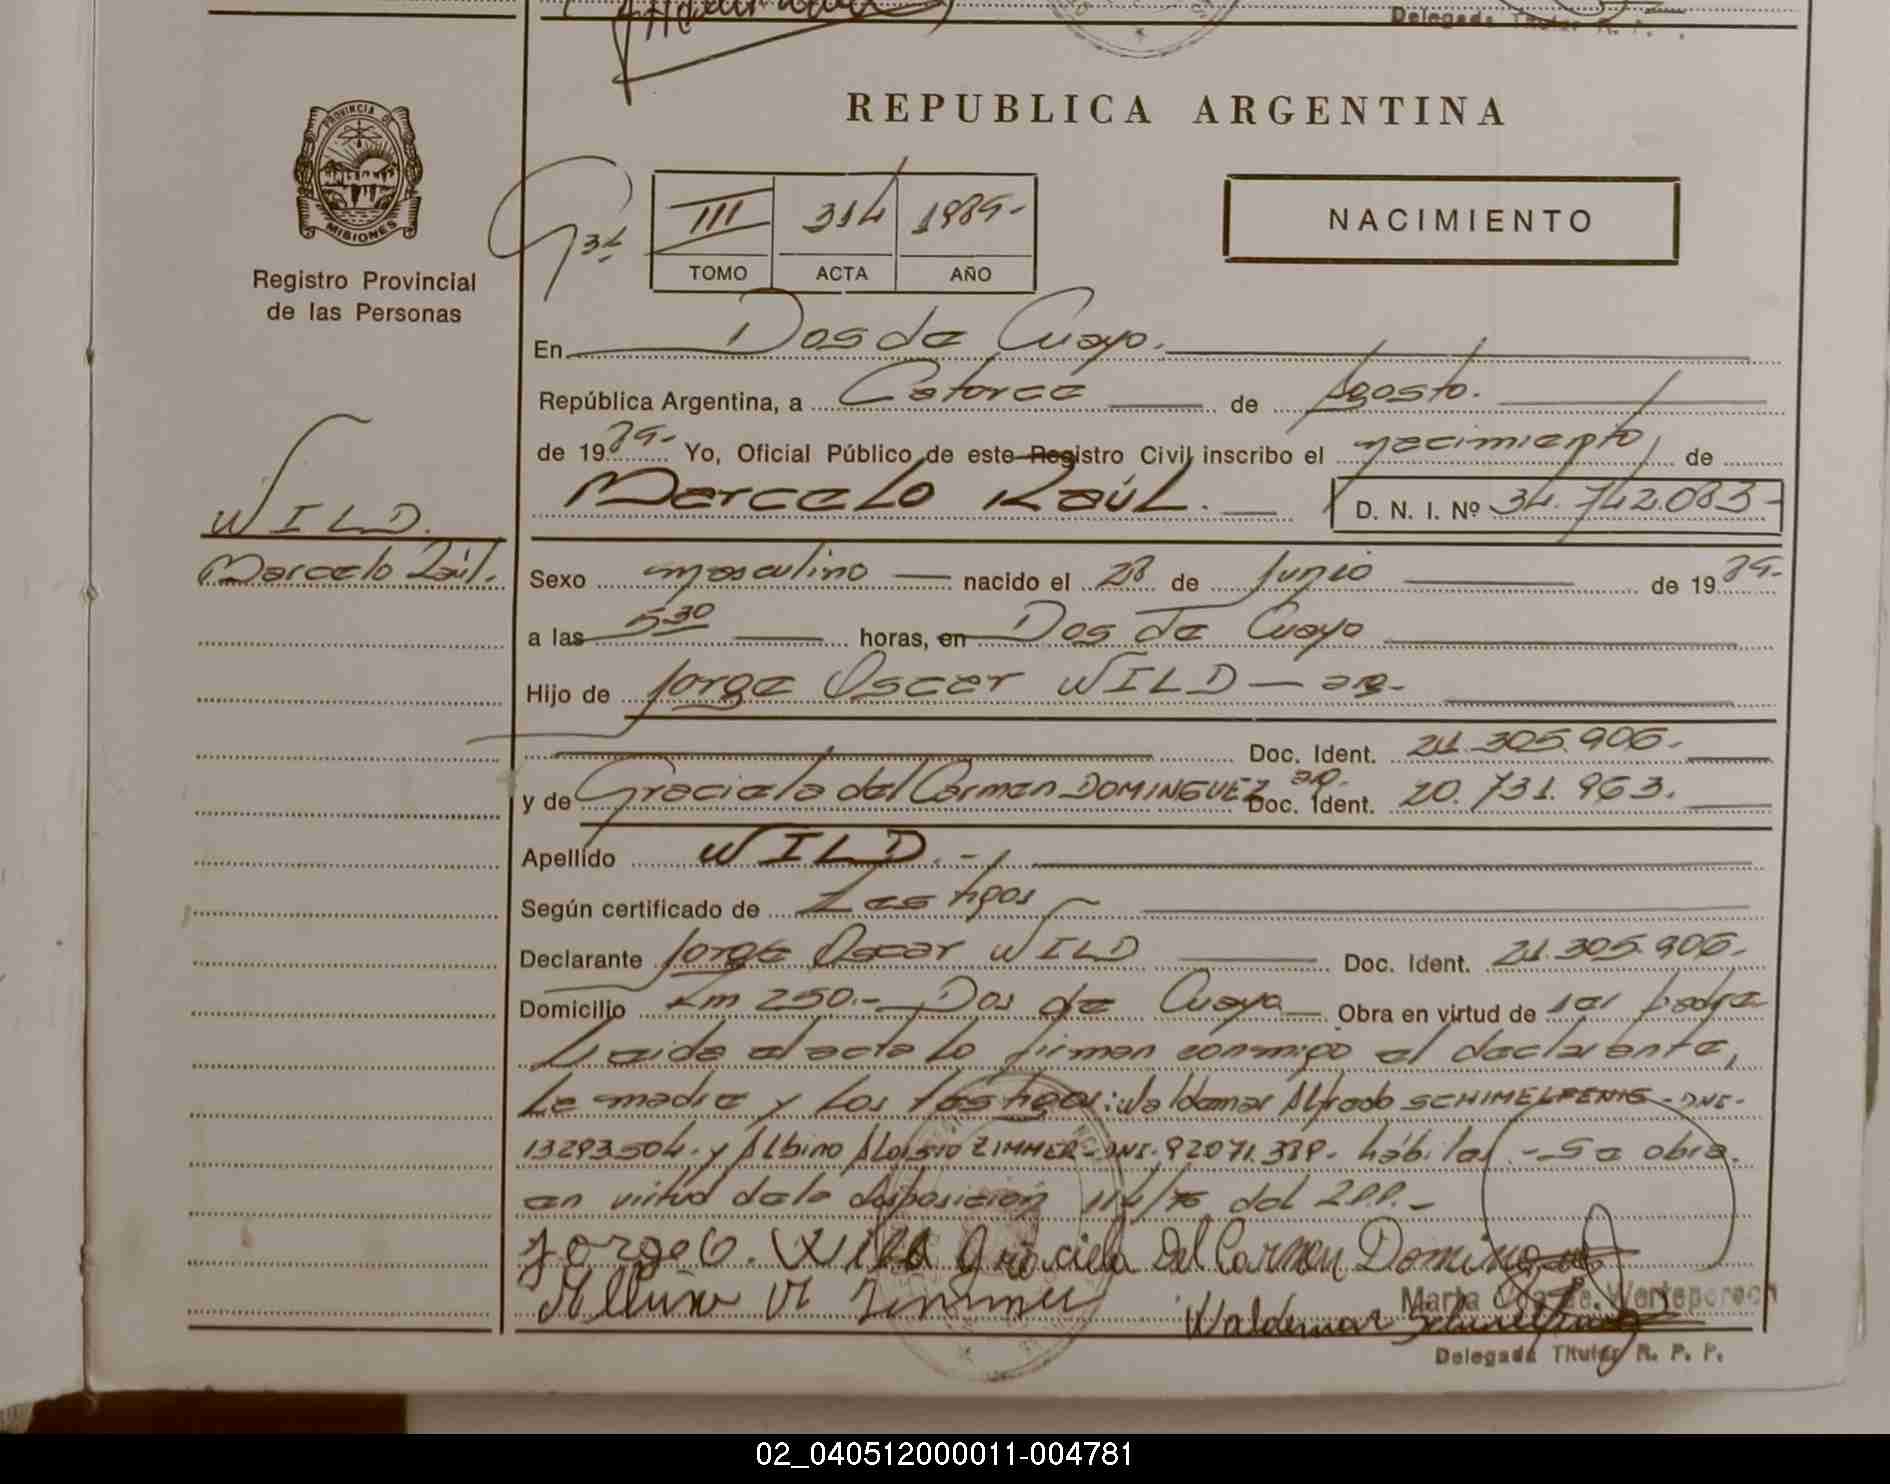 Delegada Titular R. P.
PROVINCIA DE
MISIONES
Registro Provincial
de las Personas
REPUBLICA ARGENTINA
III 314 1989-
TOMO ACTA AÑO
NACIMIENTO
En Dos de Mayo.
República Argentina, a Catorce de Agosto.
de 1989.- Yo, Oficial Público de este Registro Civil inscribo el nacimiento de
Marcelo Raúl. D. N. I. Nº 34.742.083-
WILD.
Marcelo Raúl.
Sexo masculino nacido el 28 de Junio de 1989-
a las 5.30 horas, en Dos de Mayo
Hijo de Jorge Oscar WILD - arg-
Doc. Ident. 21.305.906.-
y de Graciela del Carmen DOMINGUEZ arg. Doc. Ident. 20.731.963.
Apellido WILD.-
Según certificado de Testigos
Declarante Jorge Oscar WILD Doc. Ident. 21.305.906.-
Domicilio Km 250.- Dos de Mayo Obra en virtud de ser padre
Leida el acta lo firman conmigo el declarante,
la madre y los testigos: Waldemar Alfredo SCHIMELFENIG - DNI-
13293504. y Albino Aloisio ZIMMER- DNI- 92071.388- hábiles - Se obra
en virtud de la disposición 114/76 del R.P.P.-
Jorge O. Wild Graciela Del Carmen Dominguez
Zimmer Waldemar
Marta
Delegada Titular R. P. P.
02_040512000011-004781